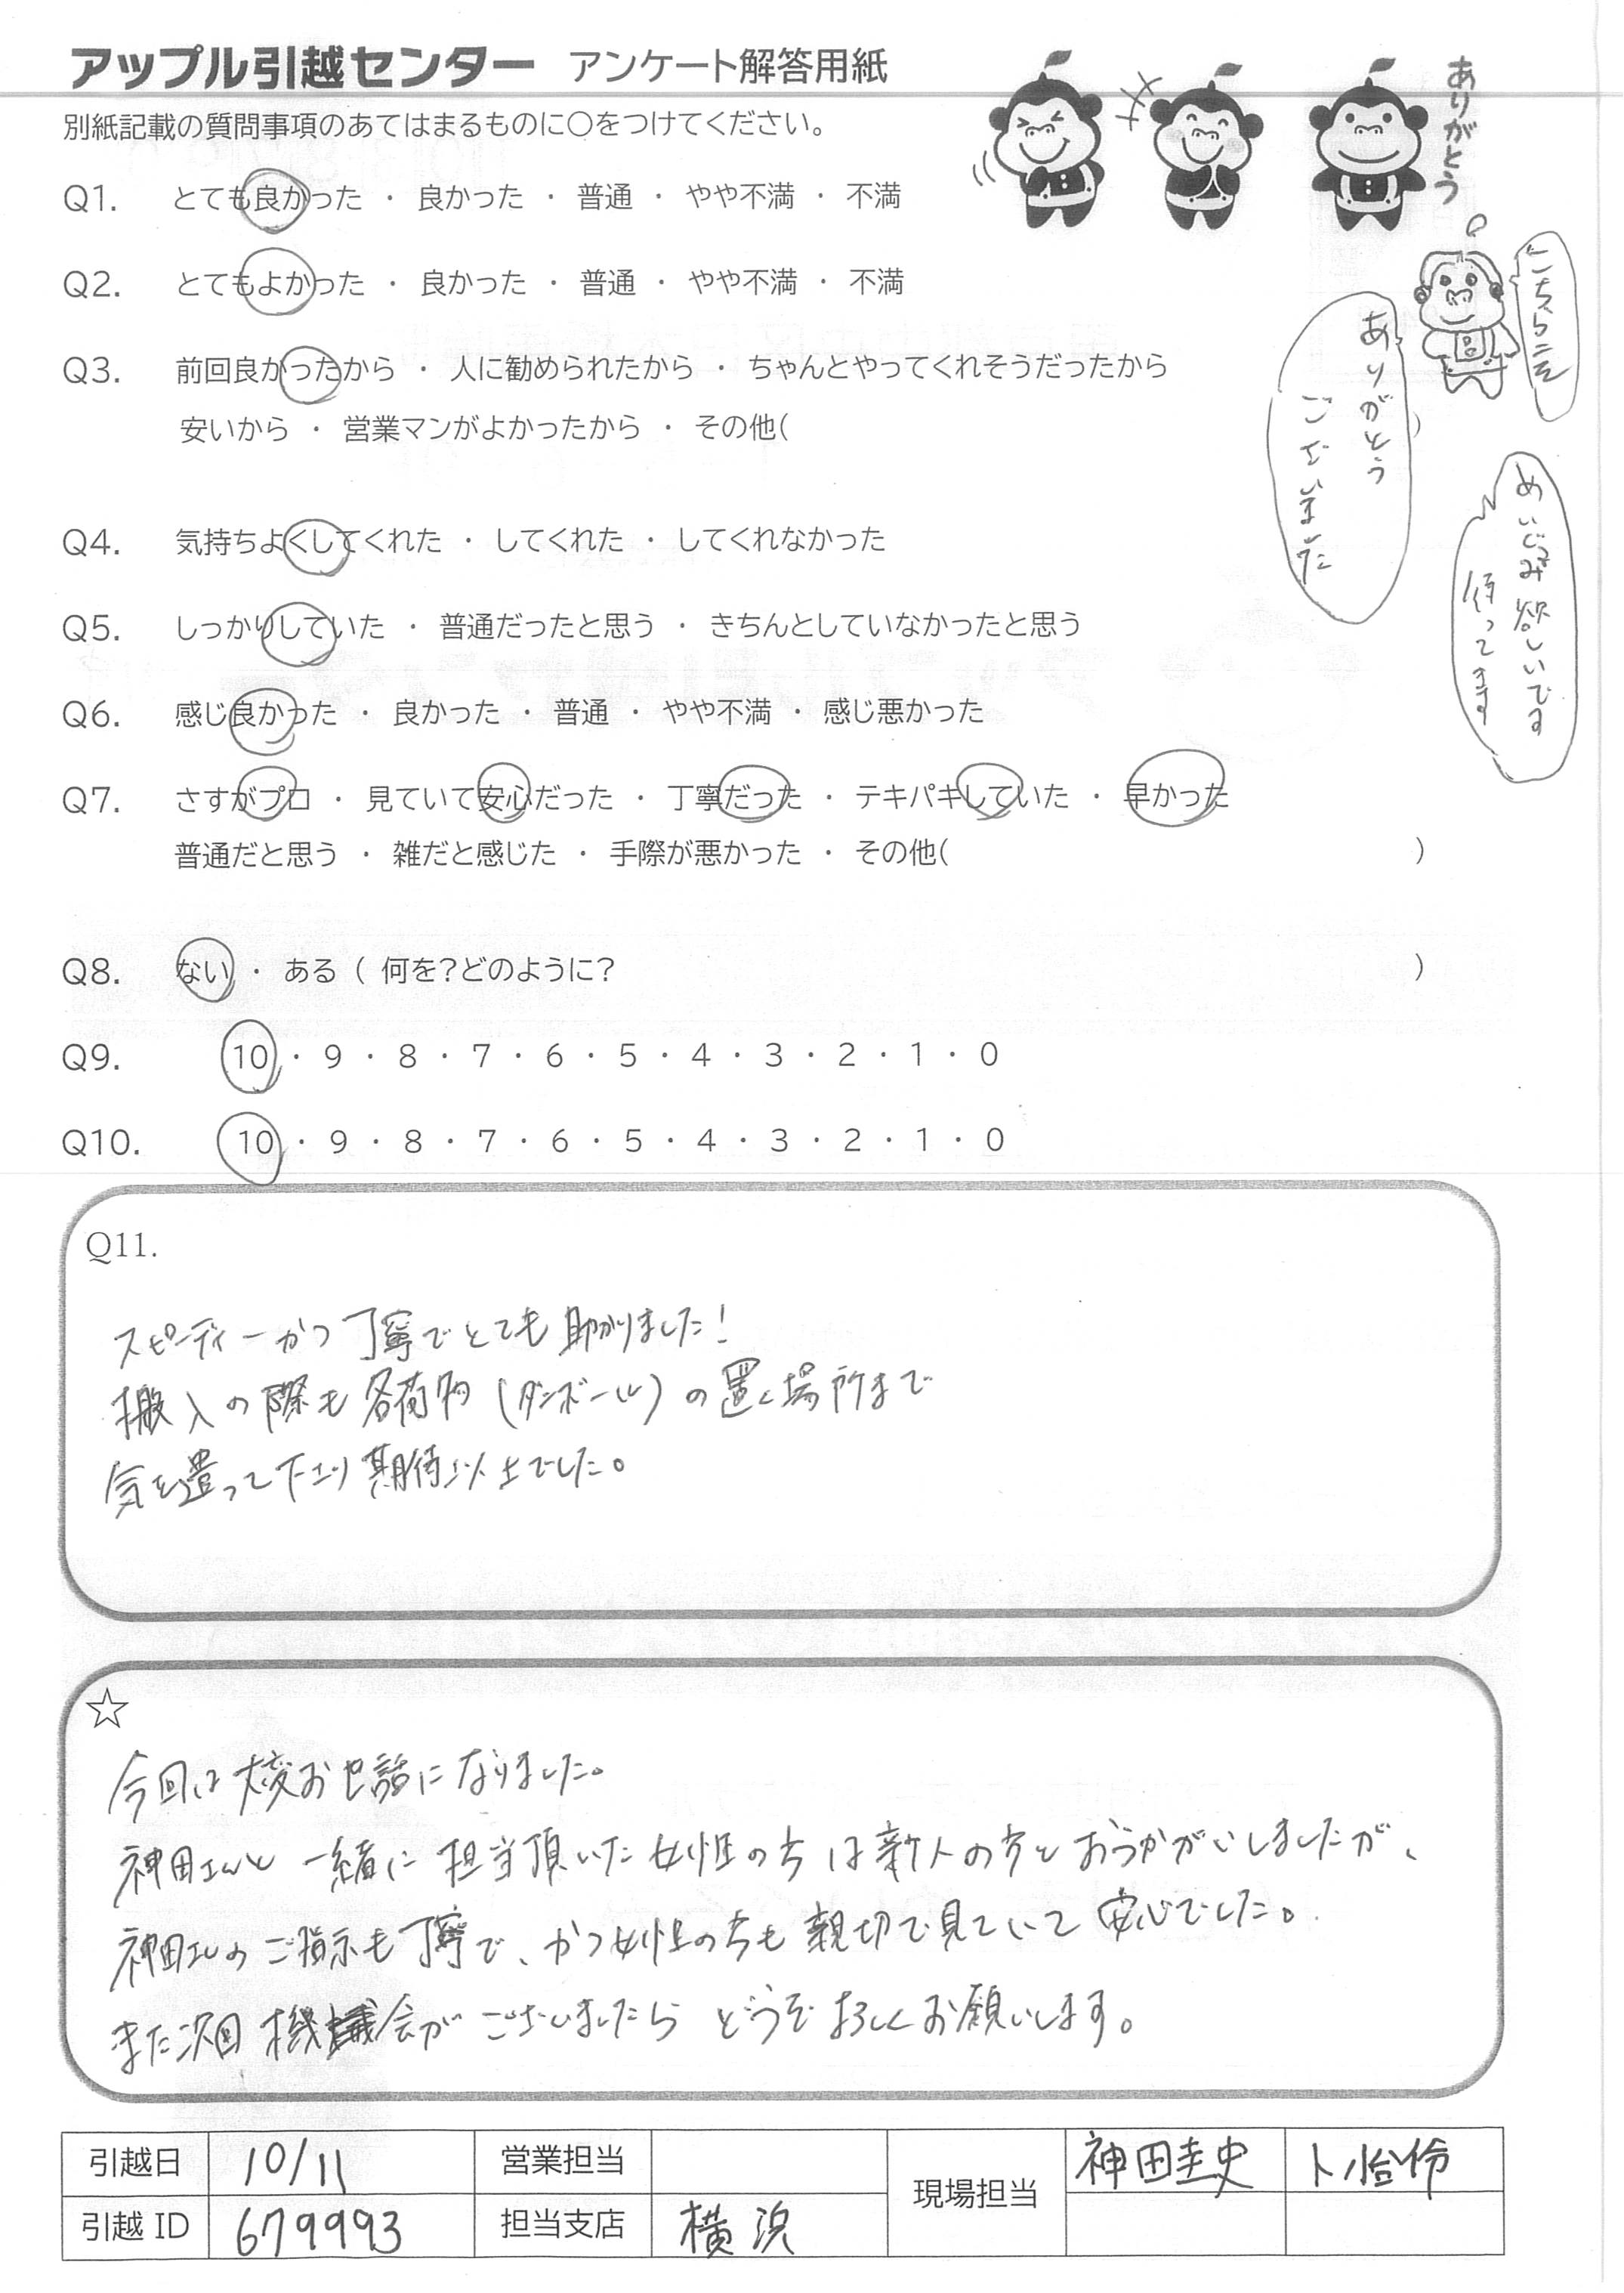 アップル引越センター アンケート解答用紙
別紙記載の質問事項のあてはまるものに○をつけてください。
ありがとう
Q1. とても良かった ・ 良かった ・ 普通 ・ やや不満 ・ 不満
Q2. とてもよかった ・ 良かった ・ 普通 ・ やや不満 ・ 不満
こちらこそ
ありがとう
ございました
Q3. 前回良かったから ・ 人に勧められたから ・ ちゃんとやってくれそうだったから
安いから ・ 営業マンがよかったから ・ その他( )
欲しいです
待ってます
Q4. 気持ちよくしてくれた ・ してくれた ・ してくれなかった
Q5. しっかりしていた ・ 普通だったと思う ・ きちんとしていなかったと思う
Q6. 感じ良かった ・ 良かった ・ 普通 ・ やや不満 ・ 感じ悪かった
Q7. さすがプロ ・ 見ていて安心だった ・ 丁寧だった ・ テキパキしていた ・ 早かった
普通だと思う ・ 雑だと感じた ・ 手際が悪かった ・ その他( )
Q8. ない ・ ある ( 何を?どのように? )
Q9. 10 ・ 9 ・ 8 ・ 7 ・ 6 ・ 5 ・ 4 ・ 3 ・ 2 ・ 1 ・ 0
Q10. 10 ・ 9 ・ 8 ・ 7 ・ 6 ・ 5 ・ 4 ・ 3 ・ 2 ・ 1 ・ 0
Q11.
スピーディーかつ丁寧でとても助かりました!
搬入の際も各荷物(ダンボール)の置く場所まで
気を遣って下さり期待以上でした。
☆
今回は大変お世話になりました。
神田さんと一緒に担当頂いた女性の方は新人の方とおうかがいしましたが、
神田さんのご指示も丁寧で、かつ女性の方も親切で見ていて安心でした。
また次回機会がございましたらどうぞよろしくお願いします。
引越日 10/11 営業担当 現場担当 神田圭史 卜怡伶
引越 ID 679993 担当支店 横浜